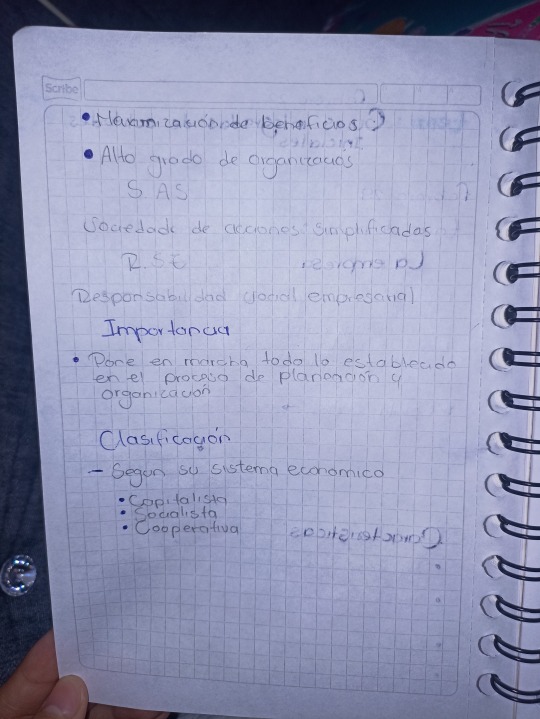 Scribe
• Maximización de beneficios
• Alto grado de organizacios
S.AS
Sociedade de acciones simplificadas
R.SE
Responsabilidad social empresarial
Importancia
• Pone en marcha todo lo establecido
en el proceso de planeación y
organización
Clasificación
- Segun su sistema economico
• Capitalista
• Socialista
• Cooperativa